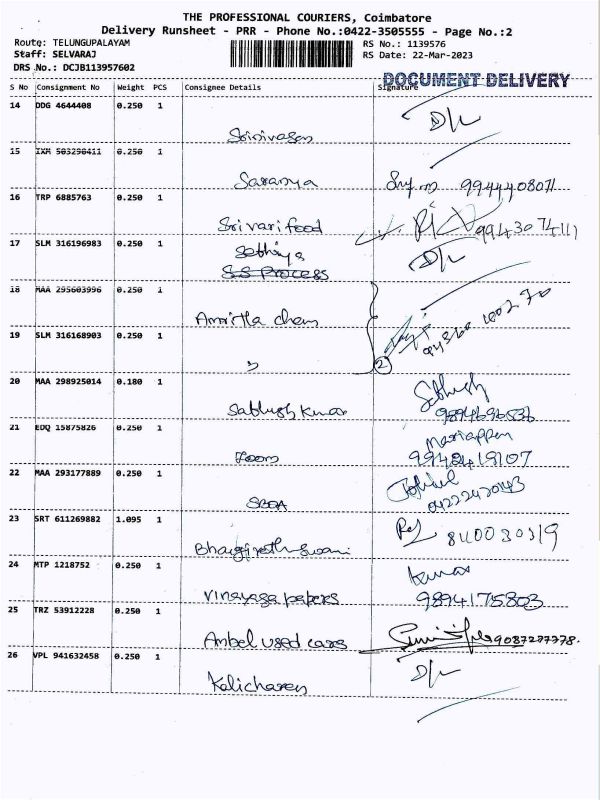 THE PROFESSIONAL COURIERS, Coimbatore
Delivery Runsheet - PRR - Phone No.:0422-3505555 - Page No.:2
Route: TELUNGUPALAYAM RS No.: 1139576
Staff: SELVARAJ RS Date: 22-Mar-2023
DRS No.: DCJB113957602
DOCUMENT DELIVERY
S No Consignment No Weight PCS Consignee Details Signature
14 DDG 4644408 0.250 1
Srinivasan D/L
15 IXM 503290411 0.250 1
Saranya 9944408071
16 TRP 6885763 0.250 1
Srivari food 9943074111
17 SLM 316196983 0.250 1
Sathiya D/L
SS Process
18 MAA 295603996 0.250 1
Amirtha chem
19 SLM 316168903 0.250 1
" 2
20 MAA 298925014 0.180 1
Sathish kumar Sathish
9894696536
21 EDQ 15875826 0.250 1
Mariappan
Zoom 9942419107
22 MAA 293177889 0.250 1
04222420143
23 SRT 611269882 1.095 1
24 MTP 1218752 0.250 1
Kumar
Vinayaga papers 9894175803
25 TRZ 53912228 0.250 1
Ambal used cars 9087277778.
26 VPL 941632458 0.250 1
Kalicharan D/L